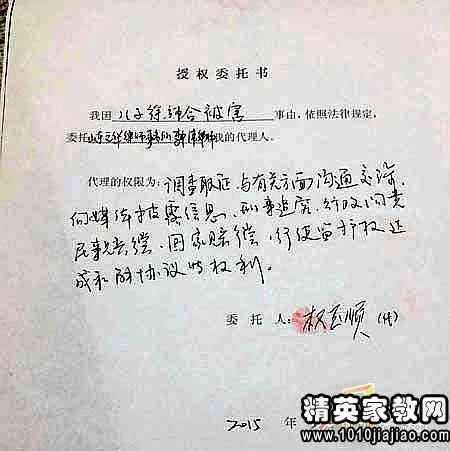 授权委托书
我因 儿子徐纯合被害 事由，依照法律规定，
委托 我的代理人。
代理的权限为：调查取证、与有关方面沟通交涉、
向媒体披露信息、刑事追究、行政问责
民事赔偿、国家赔偿、行使监护权、达
成和解协议等权利。
委托人：权玉顺（代）
2015 年
精英家教网
www.1010jiajiao.com